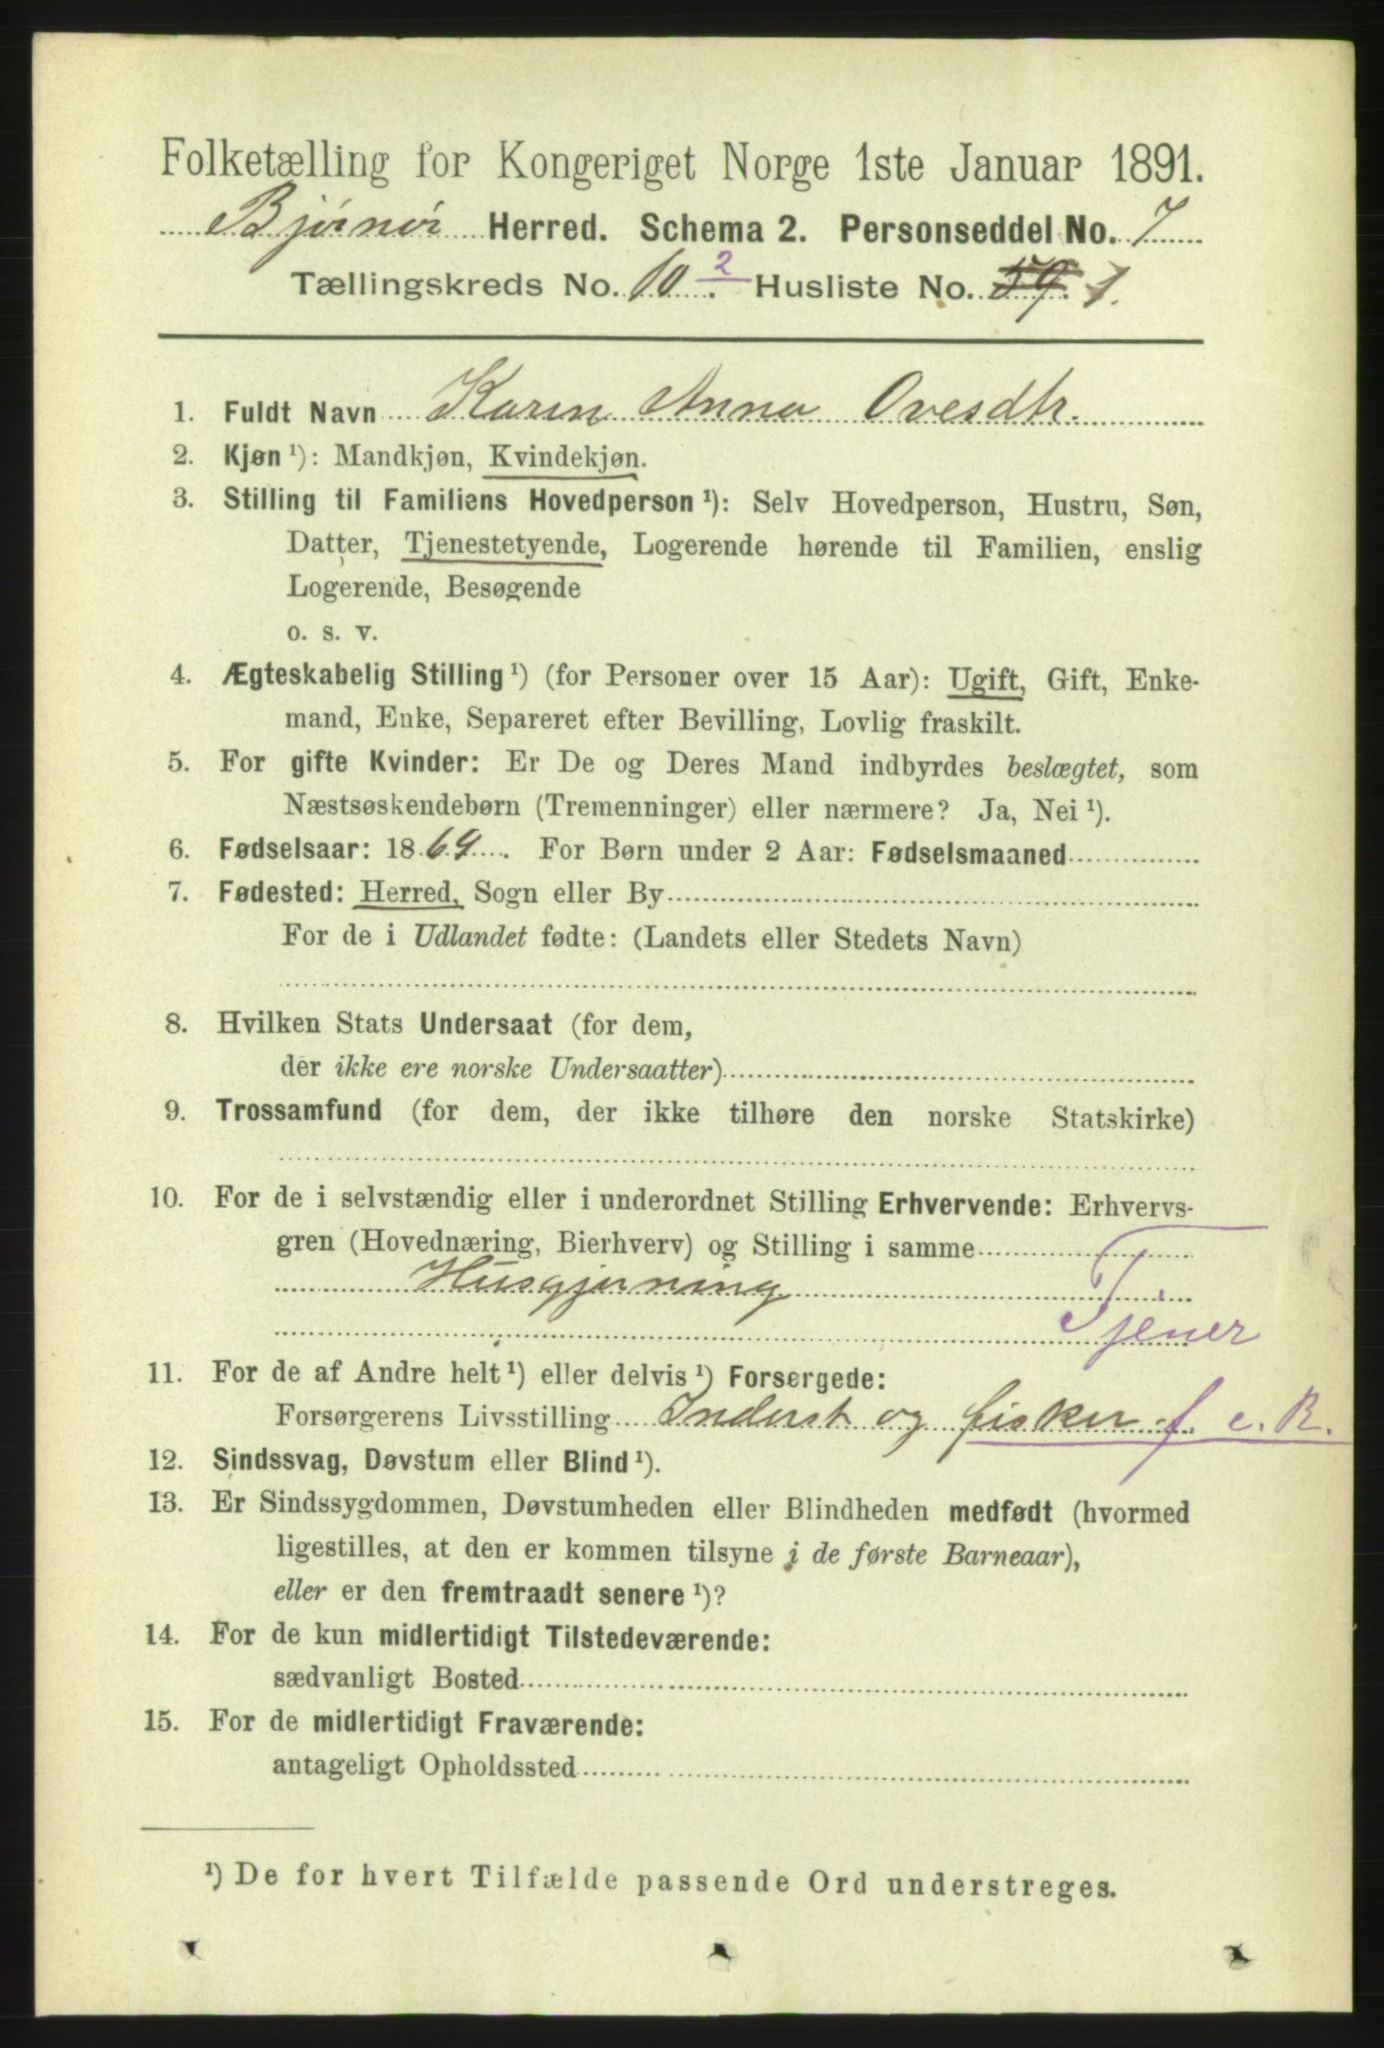 Folketælling for Kongeriget Norge 1ste Januar 1891.
Bjørnør Herred. Schema 2. Personseddel No. 7
Tællingskreds No. 10. 2 Husliste No. 59. 1.
1. Fuldt Navn Karen Anna Ovesdtr.
2. Kjøn ¹): Mandkjøn, Kvindekjøn.
3. Stilling til Familiens Hovedperson ¹): Selv Hovedperson, Hustru, Søn,
Datter, Tjenestetyende, Logerende hørende til Familien, enslig
Logerende, Besøgende
o. s. v.
4. Ægteskabelig Stilling ¹) (for Personer over 15 Aar): Ugift, Gift, Enke-
mand, Enke, Separeret efter Bevilling, Lovlig fraskilt.
5. For gifte Kvinder: Er De og Deres Mand indbyrdes beslægtet, som
Næstsøskendebørn (Tremenninger) eller nærmere? Ja, Nei ¹).
6. Fødselsaar: 1869. For Børn under 2 Aar: Fødselsmaaned
7. Fødested: Herred, Sogn eller By
For de i Udlandet fødte: (Landets eller Stedets Navn)
8. Hvilken Stats Undersaat (for dem,
der ikke ere norske Undersaatter)
9. Trossamfund (for dem, der ikke tilhøre den norske Statskirke)
10. For de i selvstændig eller i underordnet Stilling Erhvervende: Erhvervs-
gren (Hovednæring, Bierhverv) og Stilling i samme
Husgjerning
Tjener
11. For de af Andre helt ¹) eller delvis ¹) Forsørgede:
Forsørgerens Livsstilling Inderst og fisker f. e. R.
12. Sindssvag, Døvstum eller Blind ¹).
13. Er Sindssygdommen, Døvstumheden eller Blindheden medfødt (hvormed
ligestilles, at den er kommen tilsyne i de første Barneaar),
eller er den fremtraadt senere ¹)?
14. For de kun midlertidigt Tilstedeværende:
sædvanligt Bosted
15. For de midlertidigt Fraværende:
antageligt Opholdssted
¹) De for hvert Tilfælde passende Ord understreges.